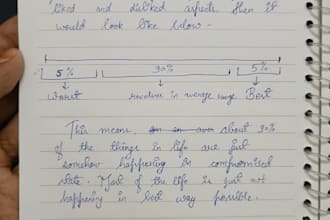 liked and disliked aspects then it
would look like below -
5% 90% 5%
Worst revolves in average range Best
This means about 90%
of the things in life are just
somehow happening in compromised
state. Most of the life is just not
happening in best way possible.